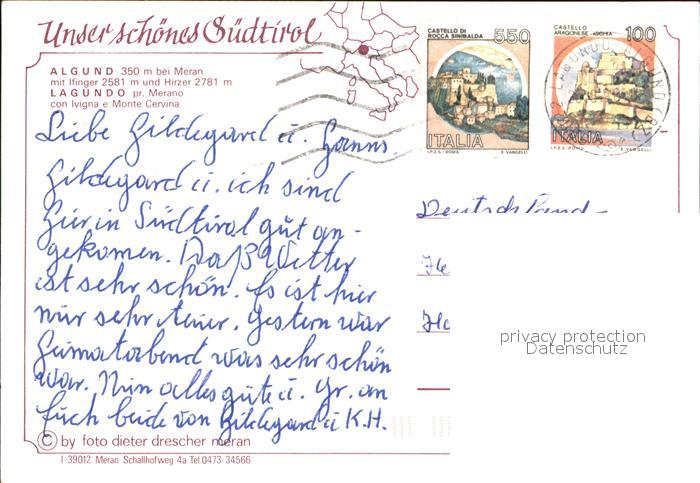 Unser schönes Südtirol
ALGUND 350 m bei Meran
mit Ifinger 2581 m und Hirzer 2781 m
LAGUNDO pr. Merano
con Ivigna e Monte Cervina
CASTELLO DI
ROCCA SINIBALDA
550
ITALIA
I.P.Z.S. - ROMA E. VANGELLI
CASTELLO
ARAGONESE - ISCHIA
100
ITALIA
I.P.Z.S. - ROMA E. VANGELLI
Liebe Hildegard u. Hanns.
Hildegard u. ich sind
hier in Südtirol gut an-
gekomen. Daß Wetter
ist sehr schön. Es ist hier
nur sehr teuer. Gestern war
Heimatabend was sehr schön
war. Nun alles gute u. Gr. an
Euch beide von Hildegard u K.H.
Deutschland
privacy protection
Datenschutz
© by foto dieter drescher meran
I-39012 Meran Schallhofweg 4a Tel 0473-34566